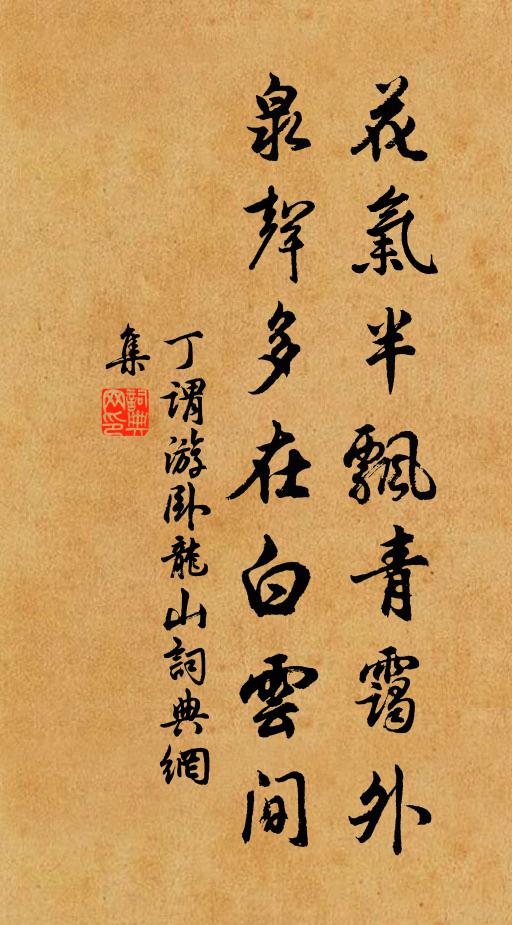 花氣半飄青靄外
泉聲多在白雲間
丁謂游卧龍山詞典網
集
詞典网印